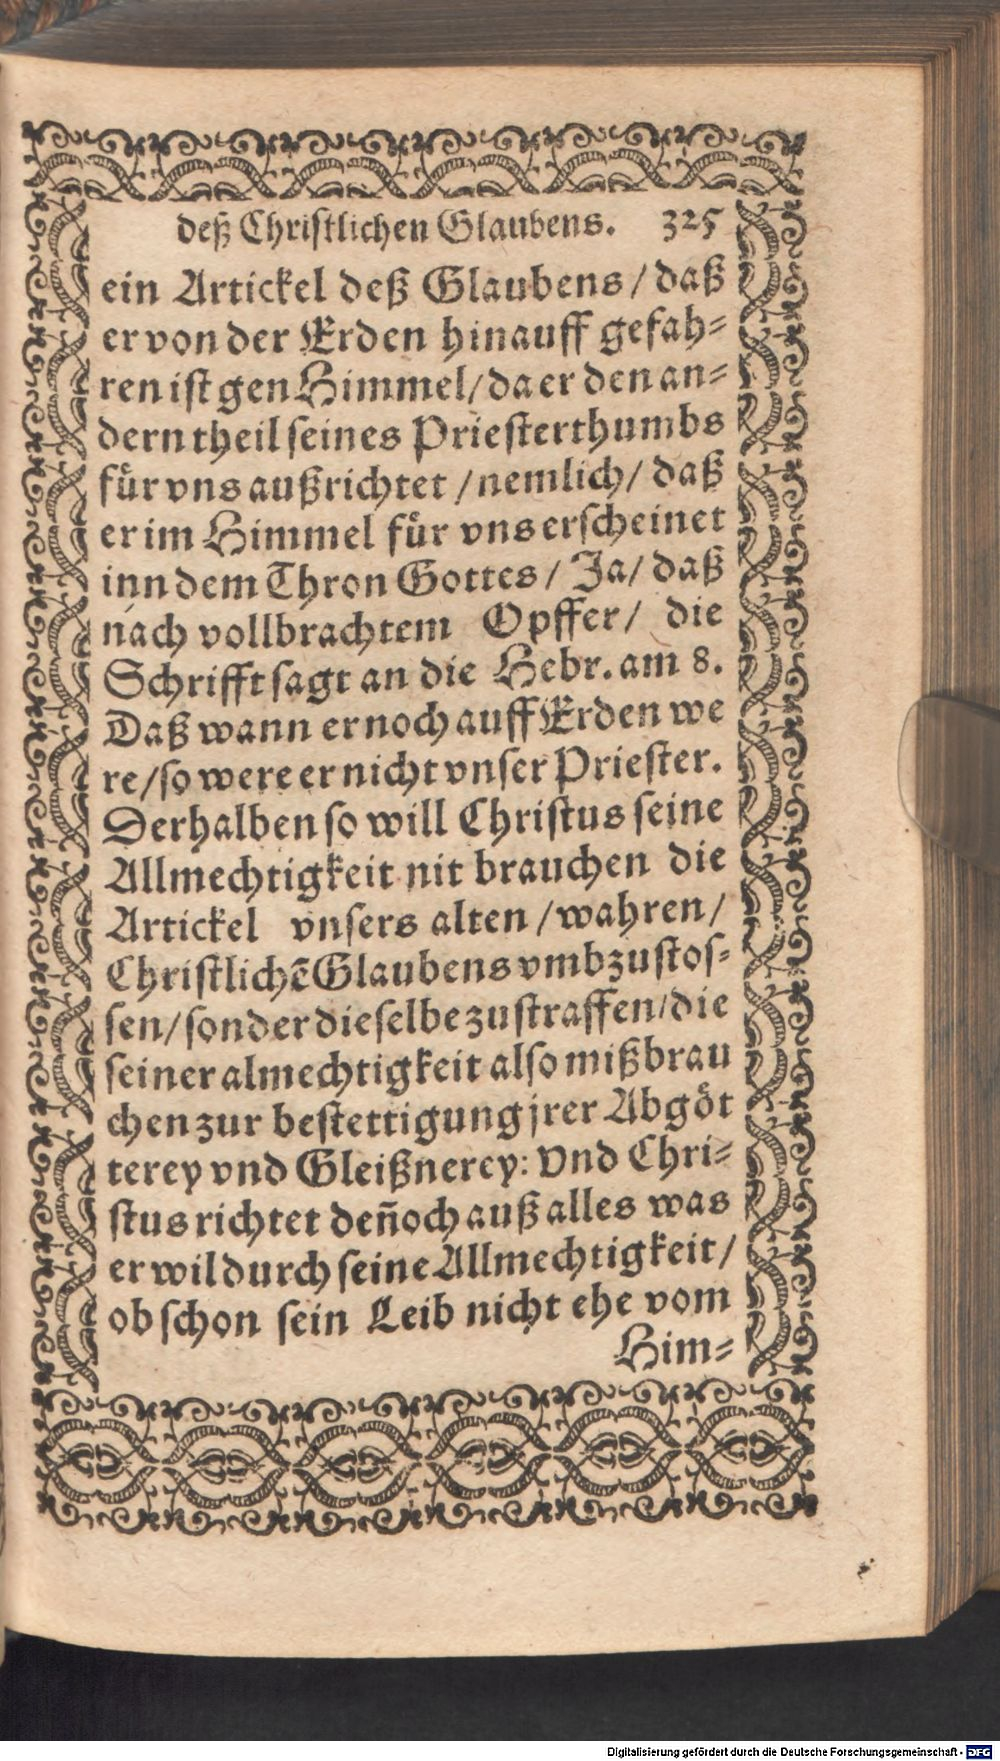 deß Christlichen Glaubens. 325
ein Artickel deß Glaubens / daß
er von der Erden hinauff gefah-
ren ist gen Himmel / da er den an-
dern theil seines Priesterthumbs
fuͤr vns außrichtet / nemlich / daß
er im Himmel fuͤr vns erscheinet
inn dem Thron Gottes / Ja / daß
nach vollbrachtem Opffer / die
Schrifft sagt an die Hebr. am 8.
Daß wann er noch auff Erden we
re / so were er nicht vnser Priester.
Derhalben so will Christus seine
Allmechtigkeit nit brauchen die
Artickel vnsers alten / wahren /
Christlichẽ Glaubens vmbzustos-
sen / sonder dieselbe zustraffen / die
seiner almechtigkeit also mißbrau
chen zur bestettigung jrer Abgoͤt
terey vnd Gleißnerey: Vnd Chri-
stus richtet deñoch auß alles was
er wil durch seine Allmechtigkeit /
ob schon sein Leib nicht ehe vom
Him-
Digitalisierung gefördert durch die Deutsche Forschungsgemeinschaft - DFG